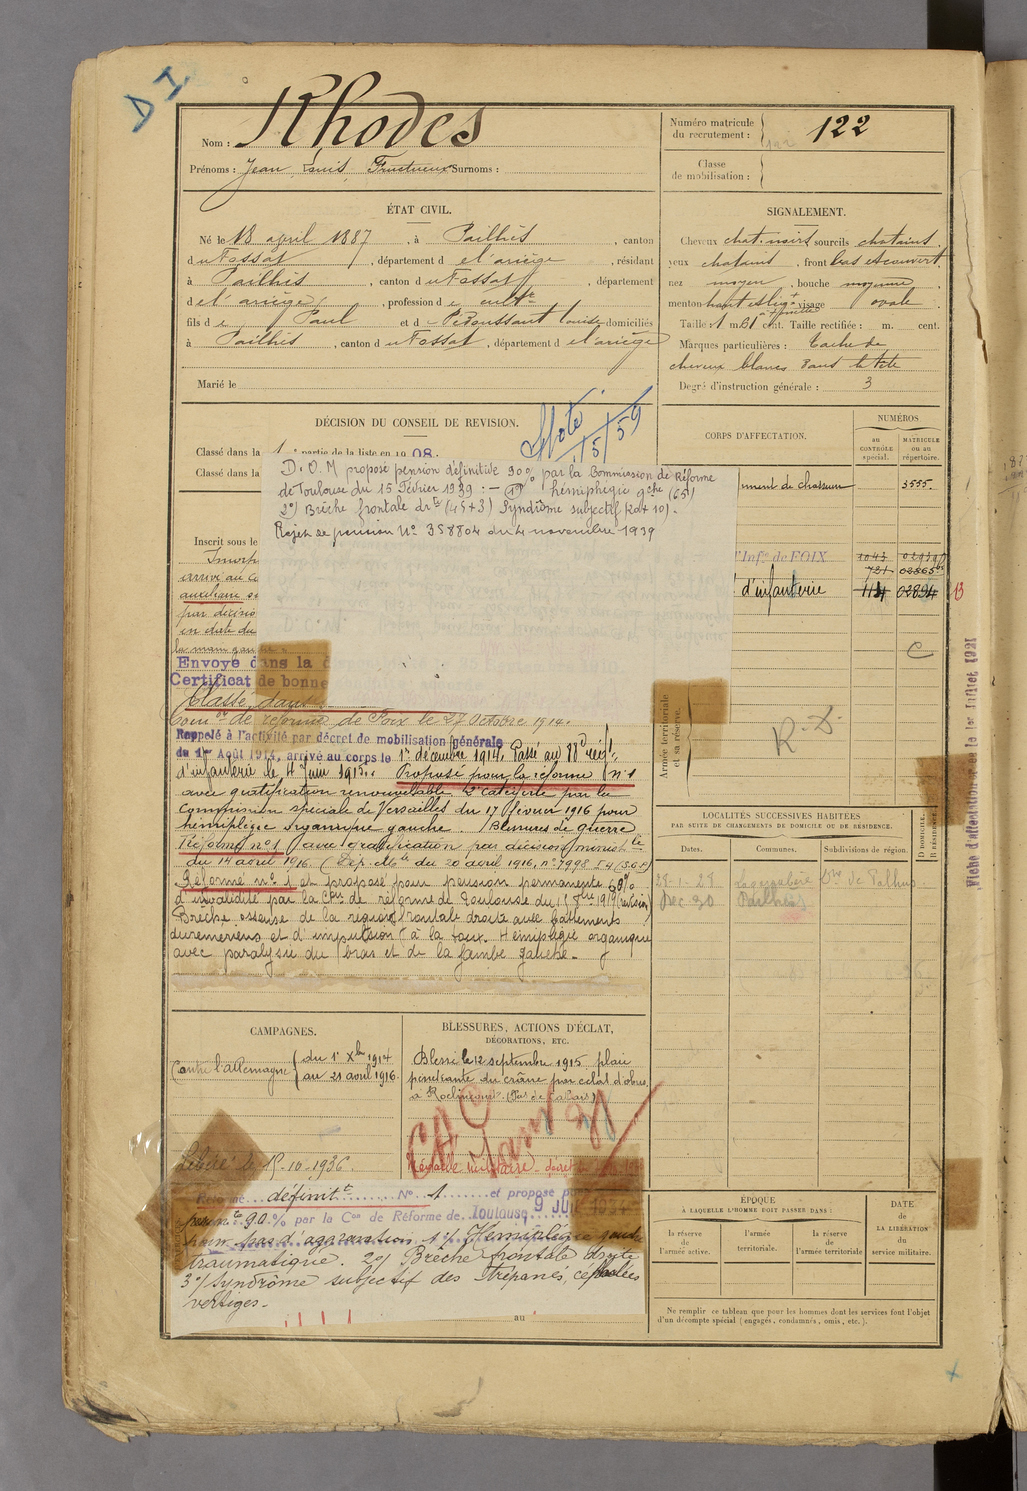 D I
Nom : Rhodes
Prénoms : Jean Louis Fructueux Surnoms :
Numéro matricule du recrutement : 122
Classe de mobilisation :
ÉTAT CIVIL.
Né le 18 april 1887, à Pailhès, canton
du Fossat, département de l'ariège, résidant
à Pailhès, canton du Fossat, département
de l'ariège, profession de cultr
fils de Paul et d domiciliés
à Pailhès, canton du Fossat, département de l'ariège
Marié le
SIGNALEMENT.
Cheveux chat. noirs sourcils chatains
yeux chatains, front bas et couvert
nez moyen, bouche moyenne
menton visage ovale
Taille : 1 m. 61 cent. Taille rectifiée : m. cent.
Marques particulières : tache de
cheveux blancs dans la tête
Degré d'instruction générale : 3
DÉCISION DU CONSEIL DE REVISION.
Classé dans la 1 partie de la liste en 1908.
Classé dans la
15/59
D.O.M proposé pension définitive 90% par la Commission de Réforme
de Toulouse du 15 Février 1939 : — 1º) hémiplegie gche (65)
2º) Brèche frontale drte (45+3) Syndrôme subjectif (20+10).
Rejet de pension Nº 358804 du 4 novembre 1939
Inscrit sous le
arrivé au co
auxiliaire
par décisio
en date du
la main gauche.
Envoyé dans la d
Certificat de bonne
Classé dans
Comon de réforme de Foix le 27 Octobre 1914.
Rappelé à l'activité par décret de mobilisation générale
du 1er Août 1914, arrivé au corps le 1r décembre 1914. Passé au 88e régt
d'infanterie le 4 juin 1915. Proposé pour la réforme nº1
avec gratification renouvelable 2e catégorie par la
Commission spéciale de Versailles du 17 février 1916 pour
hémiplégie organique gauche. Blessures de guerre.
Réformé nº1 avec gratification par décision ministlle
du 14 avril 1916. (Dép. Mlle du 20 avril 1916, nº 7998 I 4/3.6.P)
Réformé nº 1 et proposé pour pension permanente 60%
d'invalidité par la Cion de réforme de Toulouse du 1919 (révision)
Brèche osseuse de la région frontale droite avec battements
duremériens et d'impulsion à la toux. Hémiplégie organique
avec paralysie du bras et de la jambe gauche.
CORPS D'AFFECTATION.
NUMÉROS
au CONTRÔLE spécial.
MATRICULE ou au répertoire.
iment de chasseurs 3555.
d'Infie de FOIX 1043
721
d'infanterie 114 02894 13
C
Armée territoriale et sa réserve.
R. D.
LOCALITÉS SUCCESSIVES HABITÉES
PAR SUITE DE CHANGEMENTS DE DOMICILE OU DE RÉSIDENCE.
Dates. Communes. Subdivisions de région. D DOMICILE. R RÉSIDENCE.
28-1-28
Dec 30 Pailhès
Fiche d'attestation le 1er Juillet 1921
CAMPAGNES.
Contre l'allemagne du 1r Xbre 1914
au 21 avril 1916.
Libéré le 15-10-1936.
BLESSURES, ACTIONS D'ÉCLAT,
DÉCORATIONS, ETC.
Blessé le 12 septembre 1915 plaie
pénétrante du crâne par éclat d'obus,
à Roclincourt (Pas de Calais)
Médaille militaire - décret
Réformé définitt Nº 1 et proposé po
permte 90% par la Con de Réforme de Toulouse 9 JUIL 1934
pour pas d'aggravation 1º/ Hémiplégie gauche
traumatique. 2º/ Brêche frontale droite
3º/ syndrôme subjectif des trépanés, céphalées
vertiges.
au
ÉPOQUE
À LAQUELLE L'HOMME DOIT PASSER DANS :
la réserve de l'armée active.
l'armée territoriale.
la réserve de l'armée territoriale
DATE de LA LIBÉRATION du service militaire.
Ne remplir ce tableau que pour les hommes dont les services font l'objet
d'un décompte spécial (engagés, condamnés, omis, etc.).